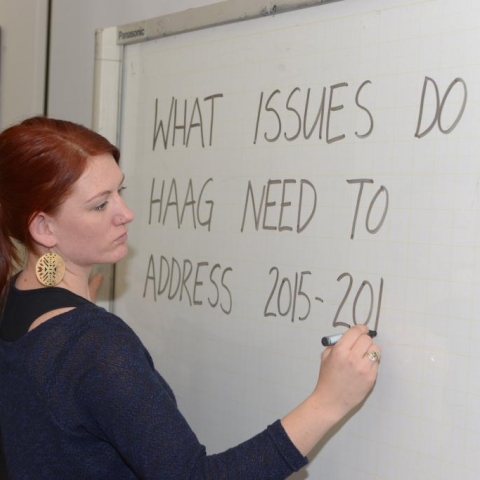 Panasonic
WHAT ISSUES DO
HAAG NEED TO
ADDRESS 2015-201